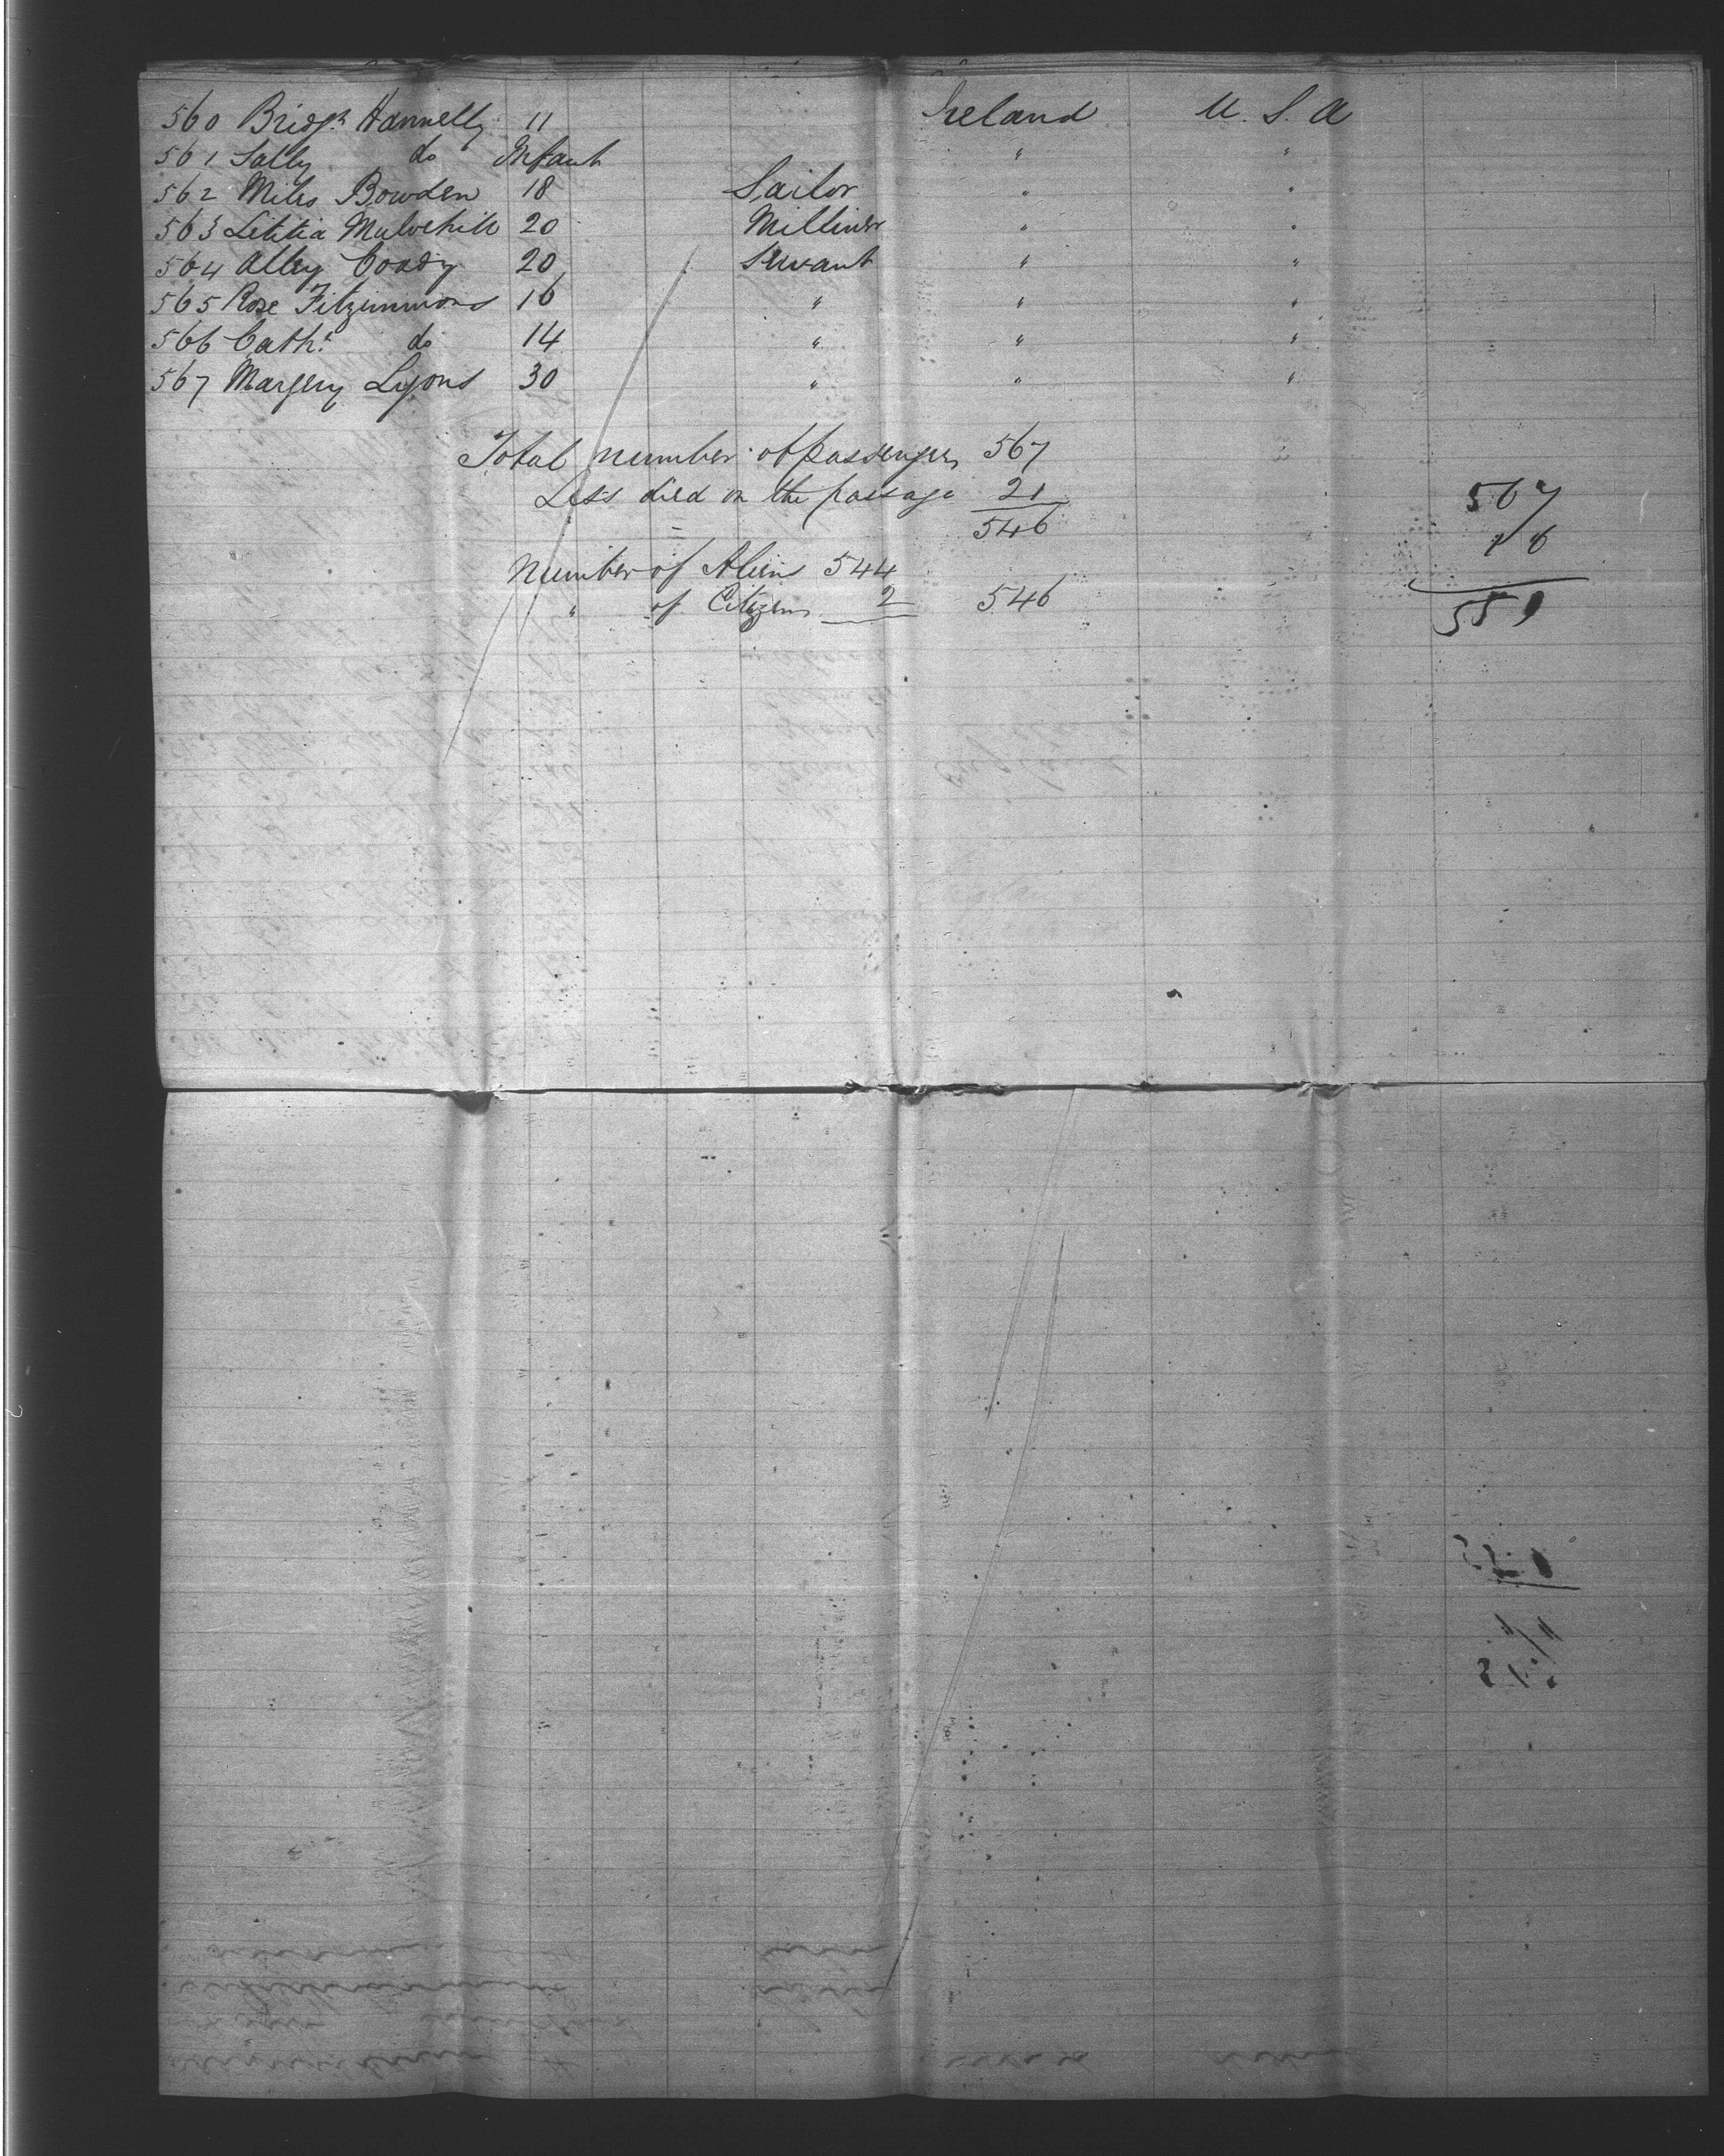 560 Bridgt Hannelly 11 Ireland U. S. A
561 Sally do Infant " "
562 Miles Bowden 18 Sailor " "
563 Letitia Mulvehill 20 Milliner " "
564 Alley Coady 20 Servant " "
565 Rose Fitzsimmons 16 " " "
566 Cathe do 14 " " "
567 Margery Lyons 30 " " "
Total number of passengers 567
Less died on the passage 21
546
Number of Aliens 544
" of Citizens 2 546
567
16
551